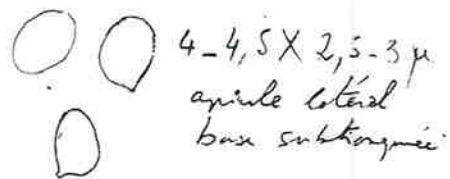 4-4,5 X 2,5-3 µ
apicule latéral
base subtronquée